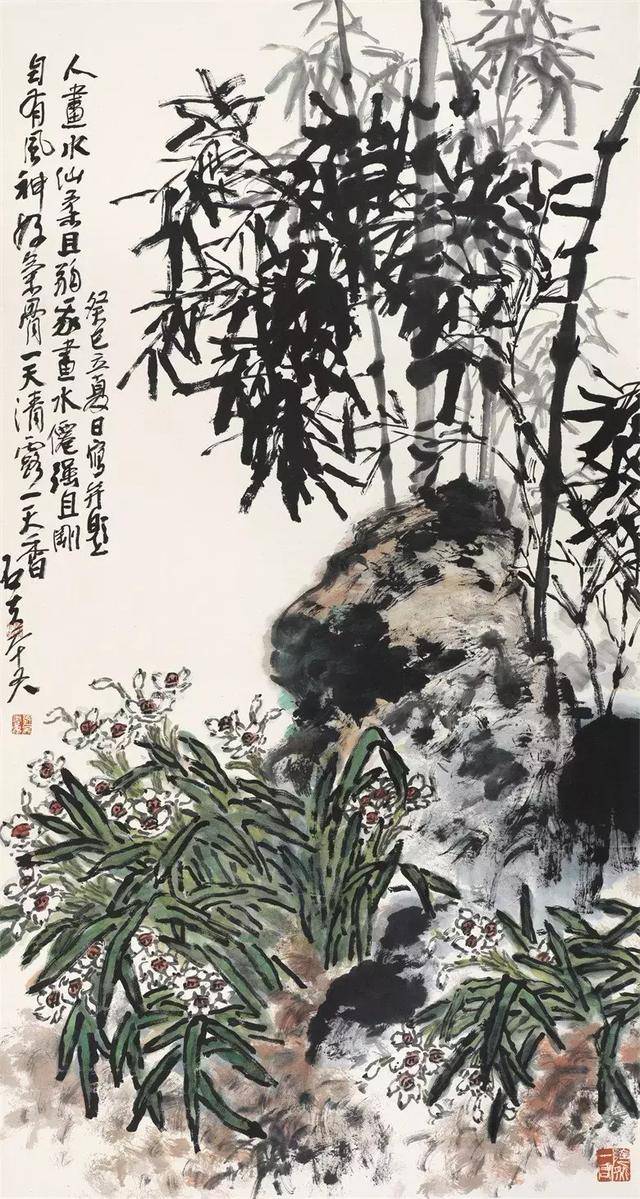 人畫水仙柔且弱我畫水僊强且剛
自有風神好氣骨一天清露一天香
癸巳立夏日寫并題
石夫